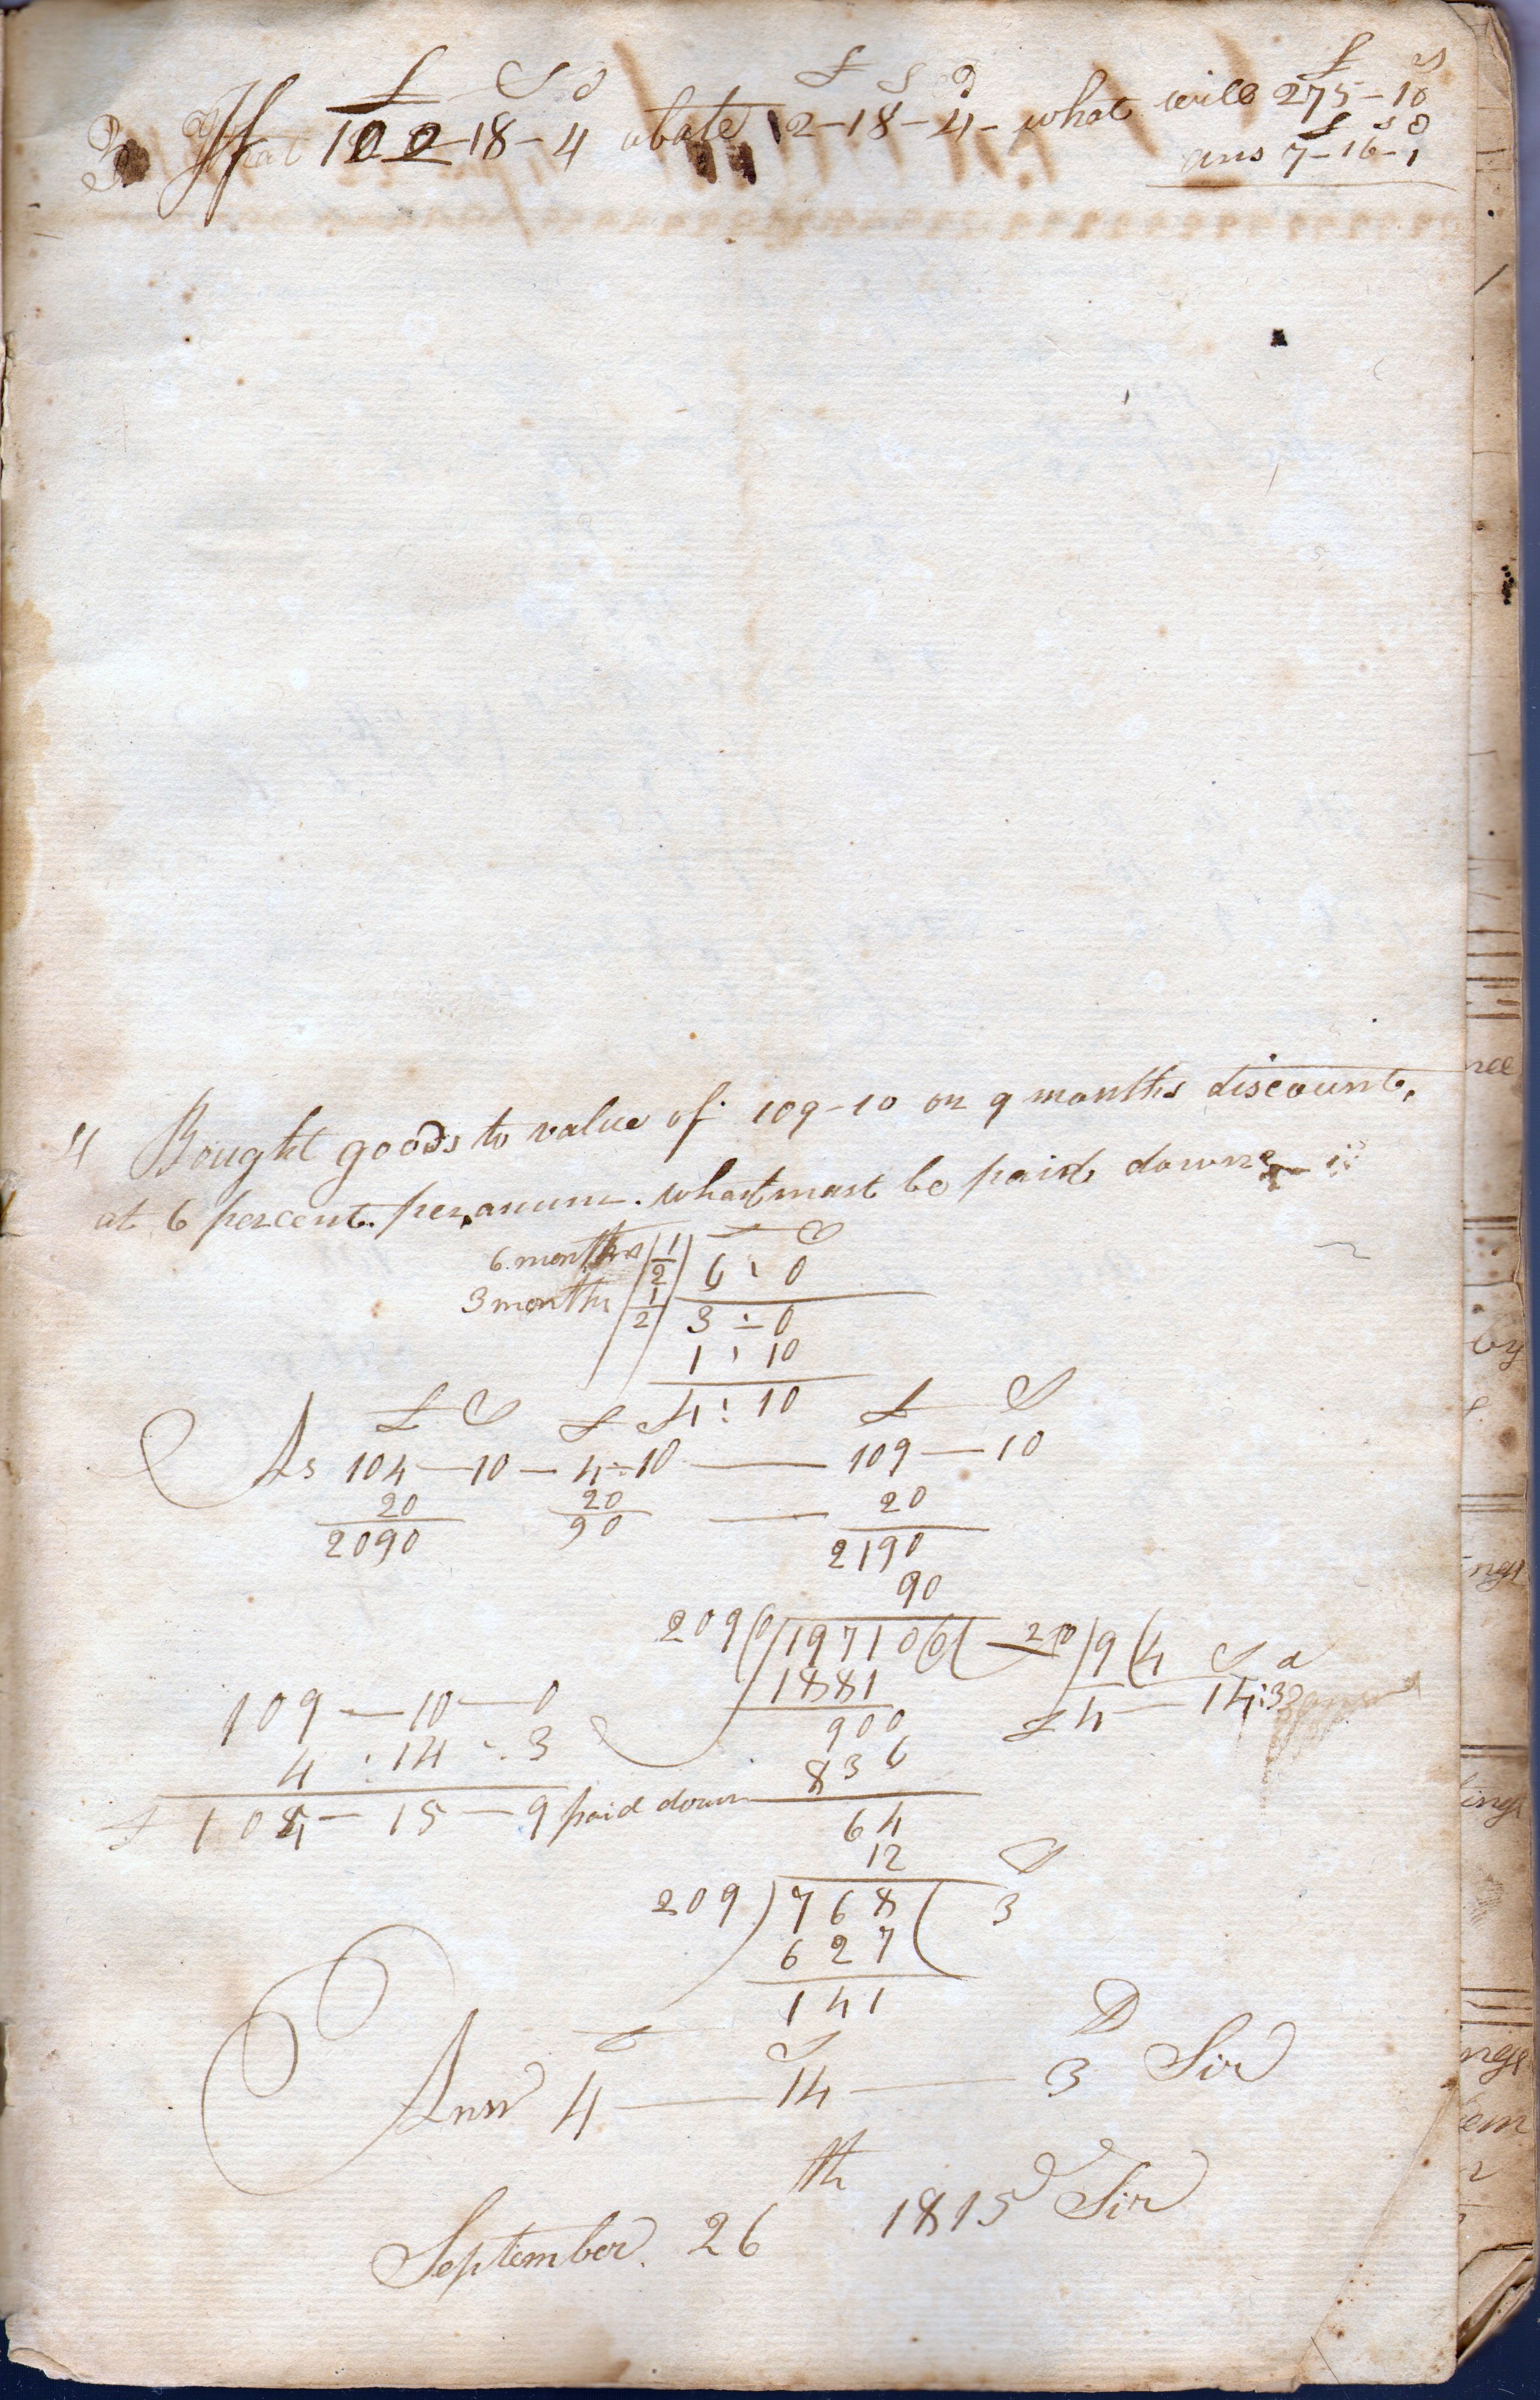 £ S d £ s d £ s
3 If 100-18-4 abate 2-18-4- what will 275-10
£ s d
ans 7-16-1
4 Bought goods to value of 109-10 on 9 months discount,
at 6 percent. per,anum. what must be paid downe
£ S
6 months 1/2 6 : 0
3 months 1/2 3 ÷ 0
1 : 10
4 : 10
£ S £ S £ S
As 104—10 — 4÷10 —— 109—10
20 20 —— 20
2090 90 2190
90
209(0)197100( 2(0)9(4 S d
1881 £ 4 — 14:3
109—10—0 900
4 : 14 : 3 836
£ 104— 15—9 paid down 64
12 D
209)768( 3
627
141
£ S D
Answ 4 — 14 — 3 Sir
September. 26th 1815 Sir